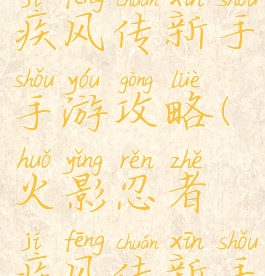 jí fēng chuán xīn shǒu
疾风传新手
shǒu yóu gōng lüè
手游攻略(
huǒ yǐng rěn zhě
火影忍者
jí fēng chuán xīn shǒu
疾风传新手